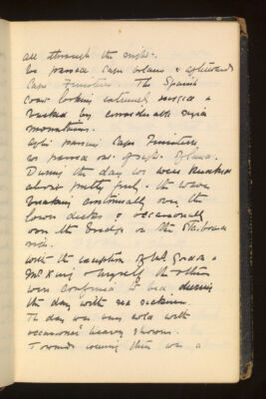 all through the night.
We passed Cape Ortelano & afterwards
Cape Finisterre. The Spanish
coast looking extremely rugged &
backed by considerable sized
mountains.
After passing Cape Finisterre
we passed out of sight of land.
During the day we were knocked
about pretty freely & the waves
breaking continually over the
lower decks & occasionally
over the bridge on the starboard
side.
With the exception of Gordon &
Mr King & myself the others
were confined to bed during
the day with sea sickness.
The day was very cold with
occasional heavy showers.
Towards evening there was a